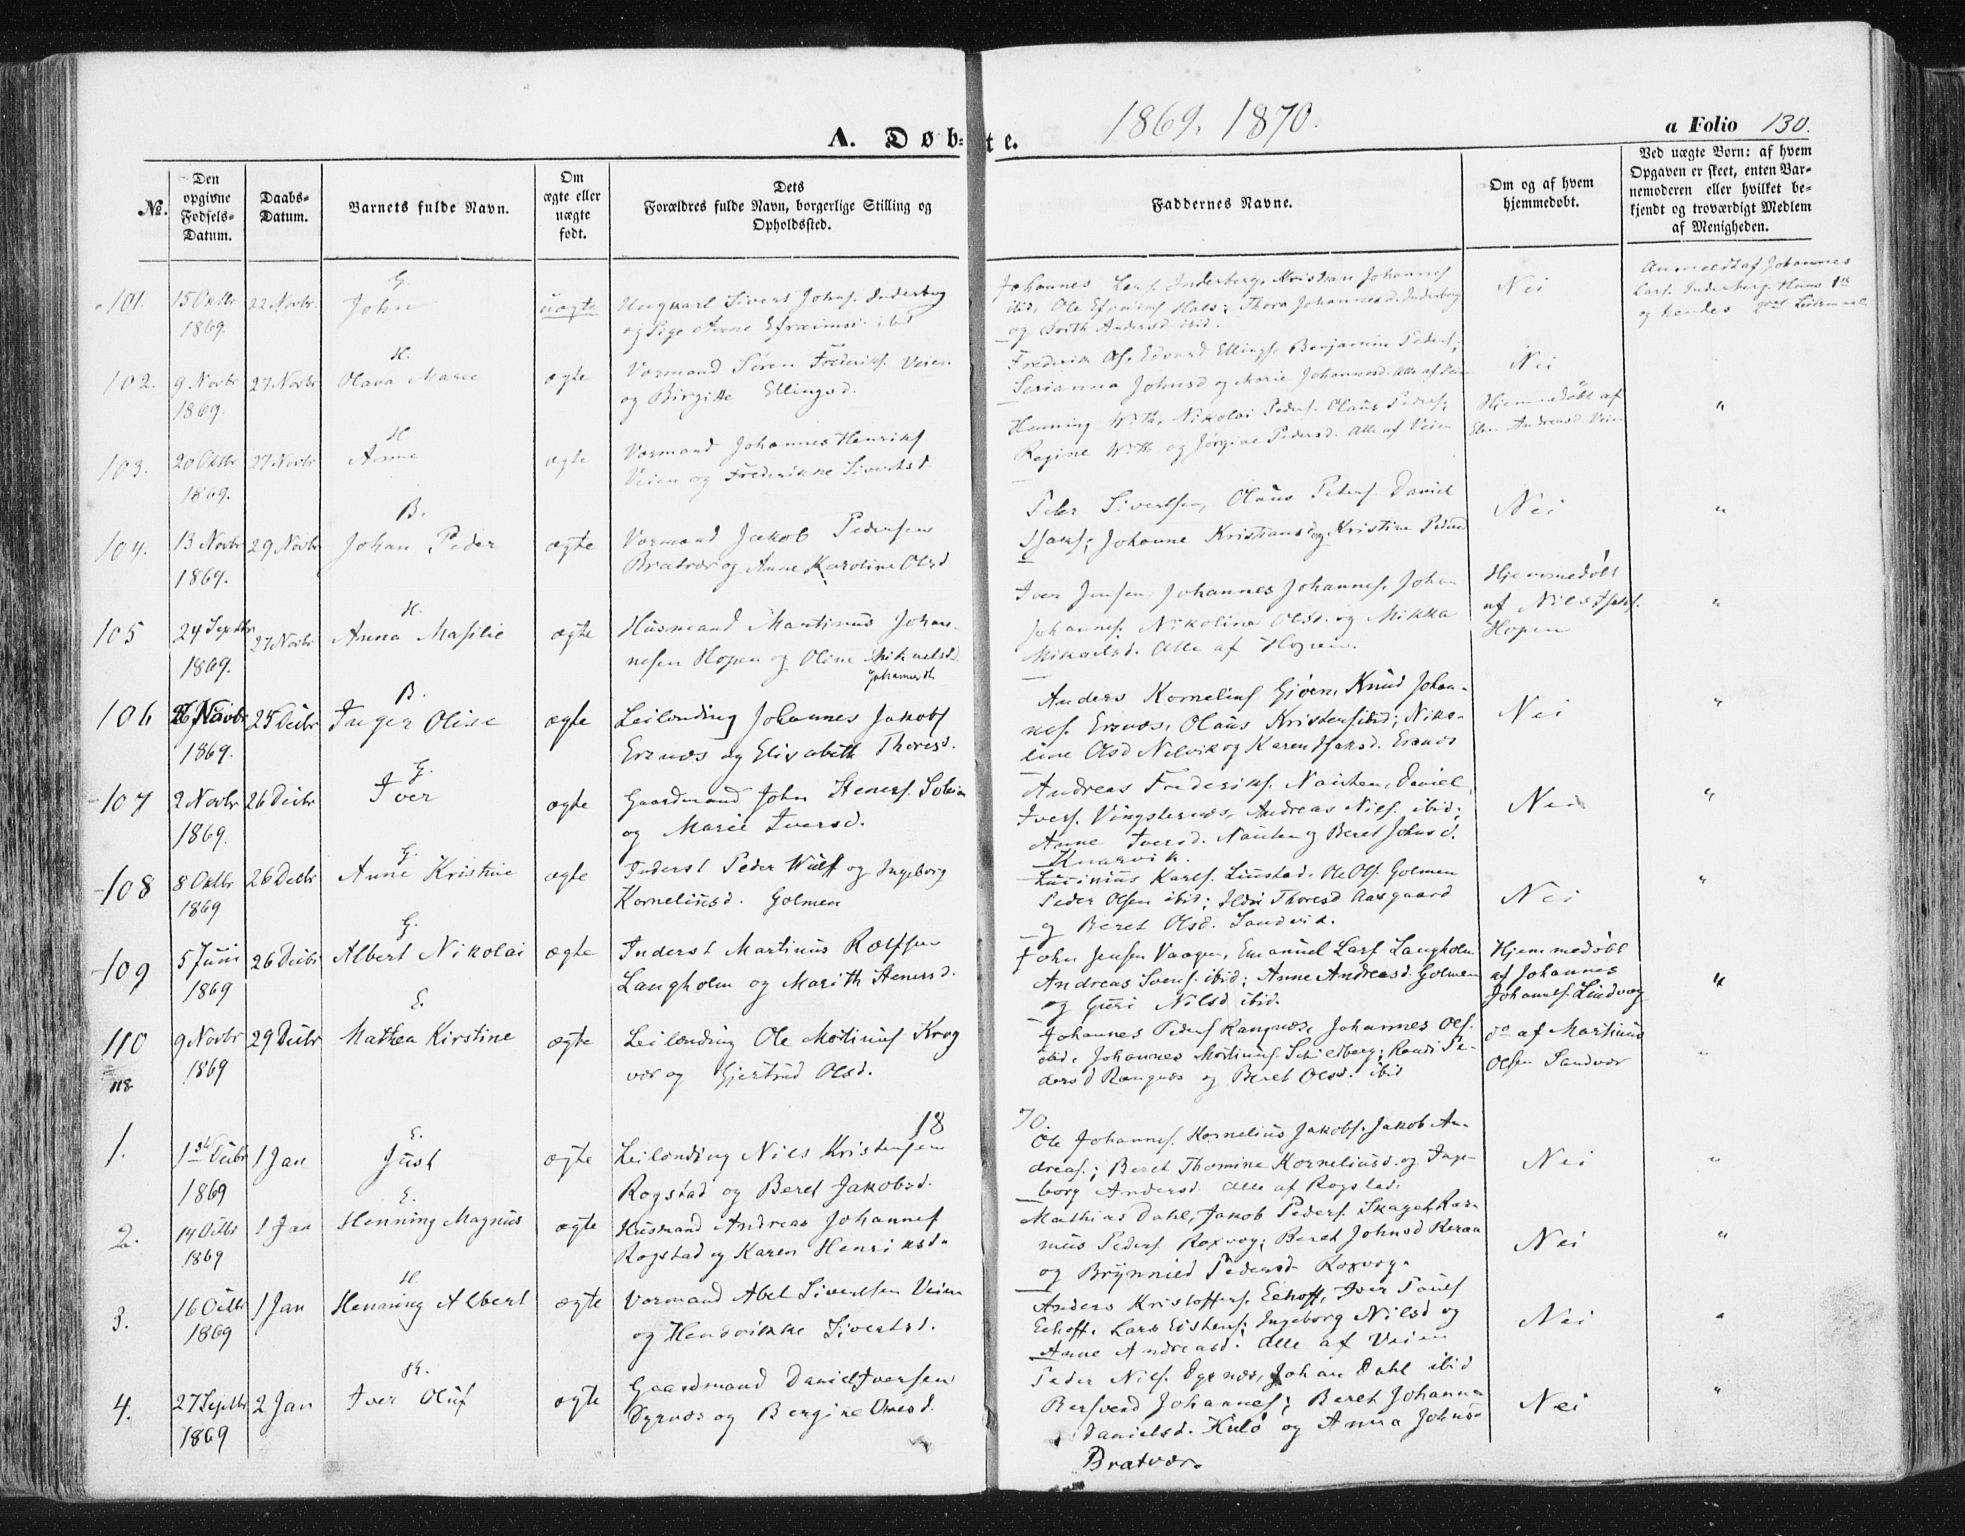 1869. 1870.
A. Døb-te.
a Folio 130.
No.
Den opgivne Fødsels-Datum.
Daabs-Datum.
Barnets fulde Navn.
Om ægte eller uægte født.
Dets Forældres fulde Navn, borgerlige Stilling og Opholdssted.
Faddernes Navne.
Om og af hvem hjemmedøbt.
Ved uægte Børn: af hvem Opgaven er skeet, enten Barnemoderen eller hvilket bekjendt og troværdigt Medlem af Menigheden.
101. 15 Oktbr 1869. 22 Novbr. G. John uægte
Ungkarl Sivert Johns. Inderberg
og Pige Anne Efraimsd. ibid
Johannes Lars. Inderberg, Kristian Johannes
ibid, Ole Efraims Hals; Thora Johannesd. Inderberg
og Andersd. ibid.
Nei
Anmeldt af Johannes
Lars. Inderberg. Hans 1ste
og hendes Leiermaal
102. 9 Novbr 1869. 27 Novbr H. Olava Marie ægte
Vormand Søren Frederiks. Veien
og Birgitte Ellingsd.
Frederik Ols. Edvard Ellings. Benjamin Peders;
Serianna Johnsd og Marie Johannesd. Alle af Veien
Nei
103. 20 Oktbr 1869. 27 Novbr H. Anne ægte
Vormand Johannes Henriks
Veien og Frederikke Sivertsd
Henning With, Nikolai Peders. Olaus Peders;
Regine With og Jørgine Pedersd. Alle af Veien
Hjemmedøbt af
Elen Andreasd. Veien
"
104. 13 Novbr 1869. 29 Novbr B. Johan Peder ægte
Vormand Jakob Pedersen
Bratvær og Anne Karoline Olsd
Peder Sivertsen, Olaus Peders. Daniel
Isaks; Johanne Kristiansd og Kristine Peders
Nei
"
105 24 Septbr 1869. 27 Novbr H. Anna Masilie ægte
Husmand Martinus Johan-
nesen Hopen og Oline Mikkelsd.
Johannesd.
Iver Jensen Johannes Johannes. Johan
Johannes. Nikoline Olsd. og Mikka
Mikaelsd. Alle af Hopen.
Hjemmedøbt
af Nils Isaks.
Hopen
"
106 26 Novbr 1869. 25 Decbr B. Inger Olise ægte
Leilending Johannes Jakobs
Ersnæs og Elisabeth Thoresd.
Anders Kornelius Gjøen, Knud Johan-
nes. Ersnæs, Olaus Kristens ibid; Niko-
line Olsd Nelvik og Karen Isaksd. Ersnæs
Nei
"
107 2 Novbr 1869. 26 Decbr G. Iver ægte
Gaardmand John Steners. Solein
og Marie Iversd.
Andreas Frederiks. Nausten, Daniel
Ivers. Vingsternæs, Andreas Nils. ibid;
Anne Iversd. Nausten og Beret Johnsd.
Knarvik.
Nei
"
108 8 Oktbr 1869 26 Decbr G. Anne Kristine ægte
Inderst Peder Wulf og Ingeborg
Korneliusd. Golmen
Lusinius Karls. Liustad. Ole Ols. Golmen
Peder Olsen ibid; Ildri Thoresd Aasgaard
og Beret Olsd. Sandvik.
Nei
"
109 5 Juni 1869 26 Decbr G. Albert Nikolai ægte
Inderst Martinus Rolfsen
Langholm og Marith Stenersd.
John Jensen Vaagen, Emanuel Lars Langholm
Andreas Svens. ibid; Anne Andreasd. Golmen
og Guri Nilsd ibid.
Hjemmedøbt
af Johannes
Johannes. Lindvaag
"
110 9 Novbr 1869 29 Decbr E. Mathea Kirstine ægte
118
Leilending Ole Mortinus Krog
vær og Gjertrud Olsd.
Johannes Peders Rangnæs, Johannes Ols.
ibid, Johannes Mortinus Schieldberg; Randi Pe-
dersd Rangnæs og Beret Olsd. ibid
do af Martinus
Olsen Sandvær
"
1870.
1. 1ste Decbr 1869 1 Jan E. Just ægte
Leilending Nils Kristensen
Rogstad og Beret Jakobsd.
Ole Johannes. Kornelius Jakobs. Jakob An-
dreas.; Beret Thomine Korneliusd. og Inge-
borg Andersd. Alle af Rogstad.
Nei
"
2. 14 Octbr 1869 1 Jan E. Henning Magnus ægte
Husmand Andreas Johannes
Rogstad og Karen Henriksd.
Mathias Dahl, Jakob Peders. Skaget, Ras-
mus Peders. Roxvog; Beret Johnsd Reraa
og Brynnild Pedersd. Roxvog.
Nei
"
3. 16 Octbr 1869 1 Jan H. Henning Albert ægte
Vormand Abel Sivertsen Veien
og Hendrikke Sivertsd.
Anders Kristoffers. Eehoff, Iver Pouls
Eehoff. Lars Eistens; Ingeborg Nilsd og
Anne Andreasd. Alle af Veien
Nei
"
4. 27 Septbr 1869 2 Jan B. Iver Oluf ægte
Gaardmand Daniel Iversen
Dyrnæs og Bergine Olsd.
Peder Nils. Dyrnæs, Johan Dahl ibid
Bersvend Johannes; Beret Johanna
Danielsd. Kulø og Anna Johnsd
Bratvær.
Nei
"